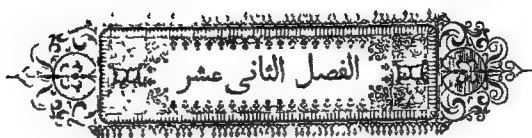 الفصل الثانى عشر